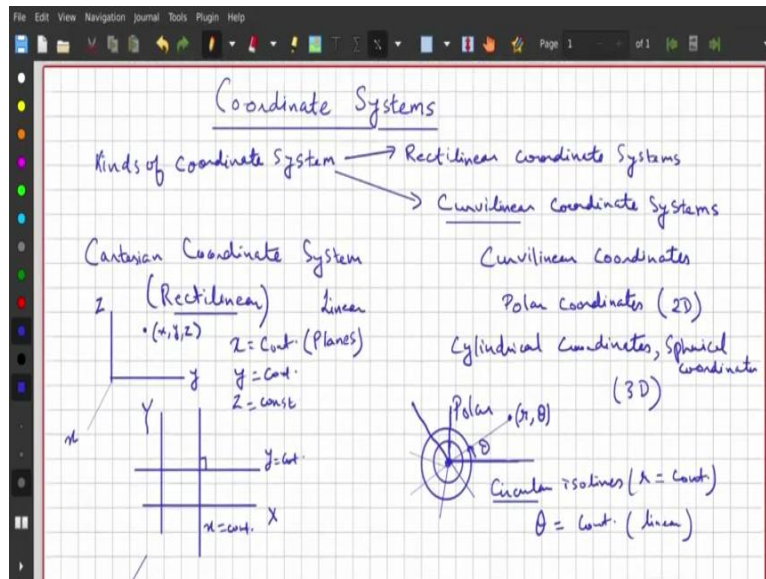 File Edit View Navigation Journal Tools Plugin Help
Page 1 of 1
Coordinate Systems
Kinds of Coordinate System → Rectilinear coordinate Systems
→ Curvilinear Coordinate Systems
Cartesian Coordinate System
(Rectilinear) Linear
Z
•(x,y,z)
x = Cont. (Planes)
y = Cont.
z = const
y
x
Y
y = cont.
x = cont.
X
Curvilinear Coordinates
Polar Coordinates (2D)
Cylindrical Coordinates, Spherical
coordinates
(3D)
Polar
•(r, θ)
θ
Circular isolines (r = Cont.)
θ = Cont. (linear)